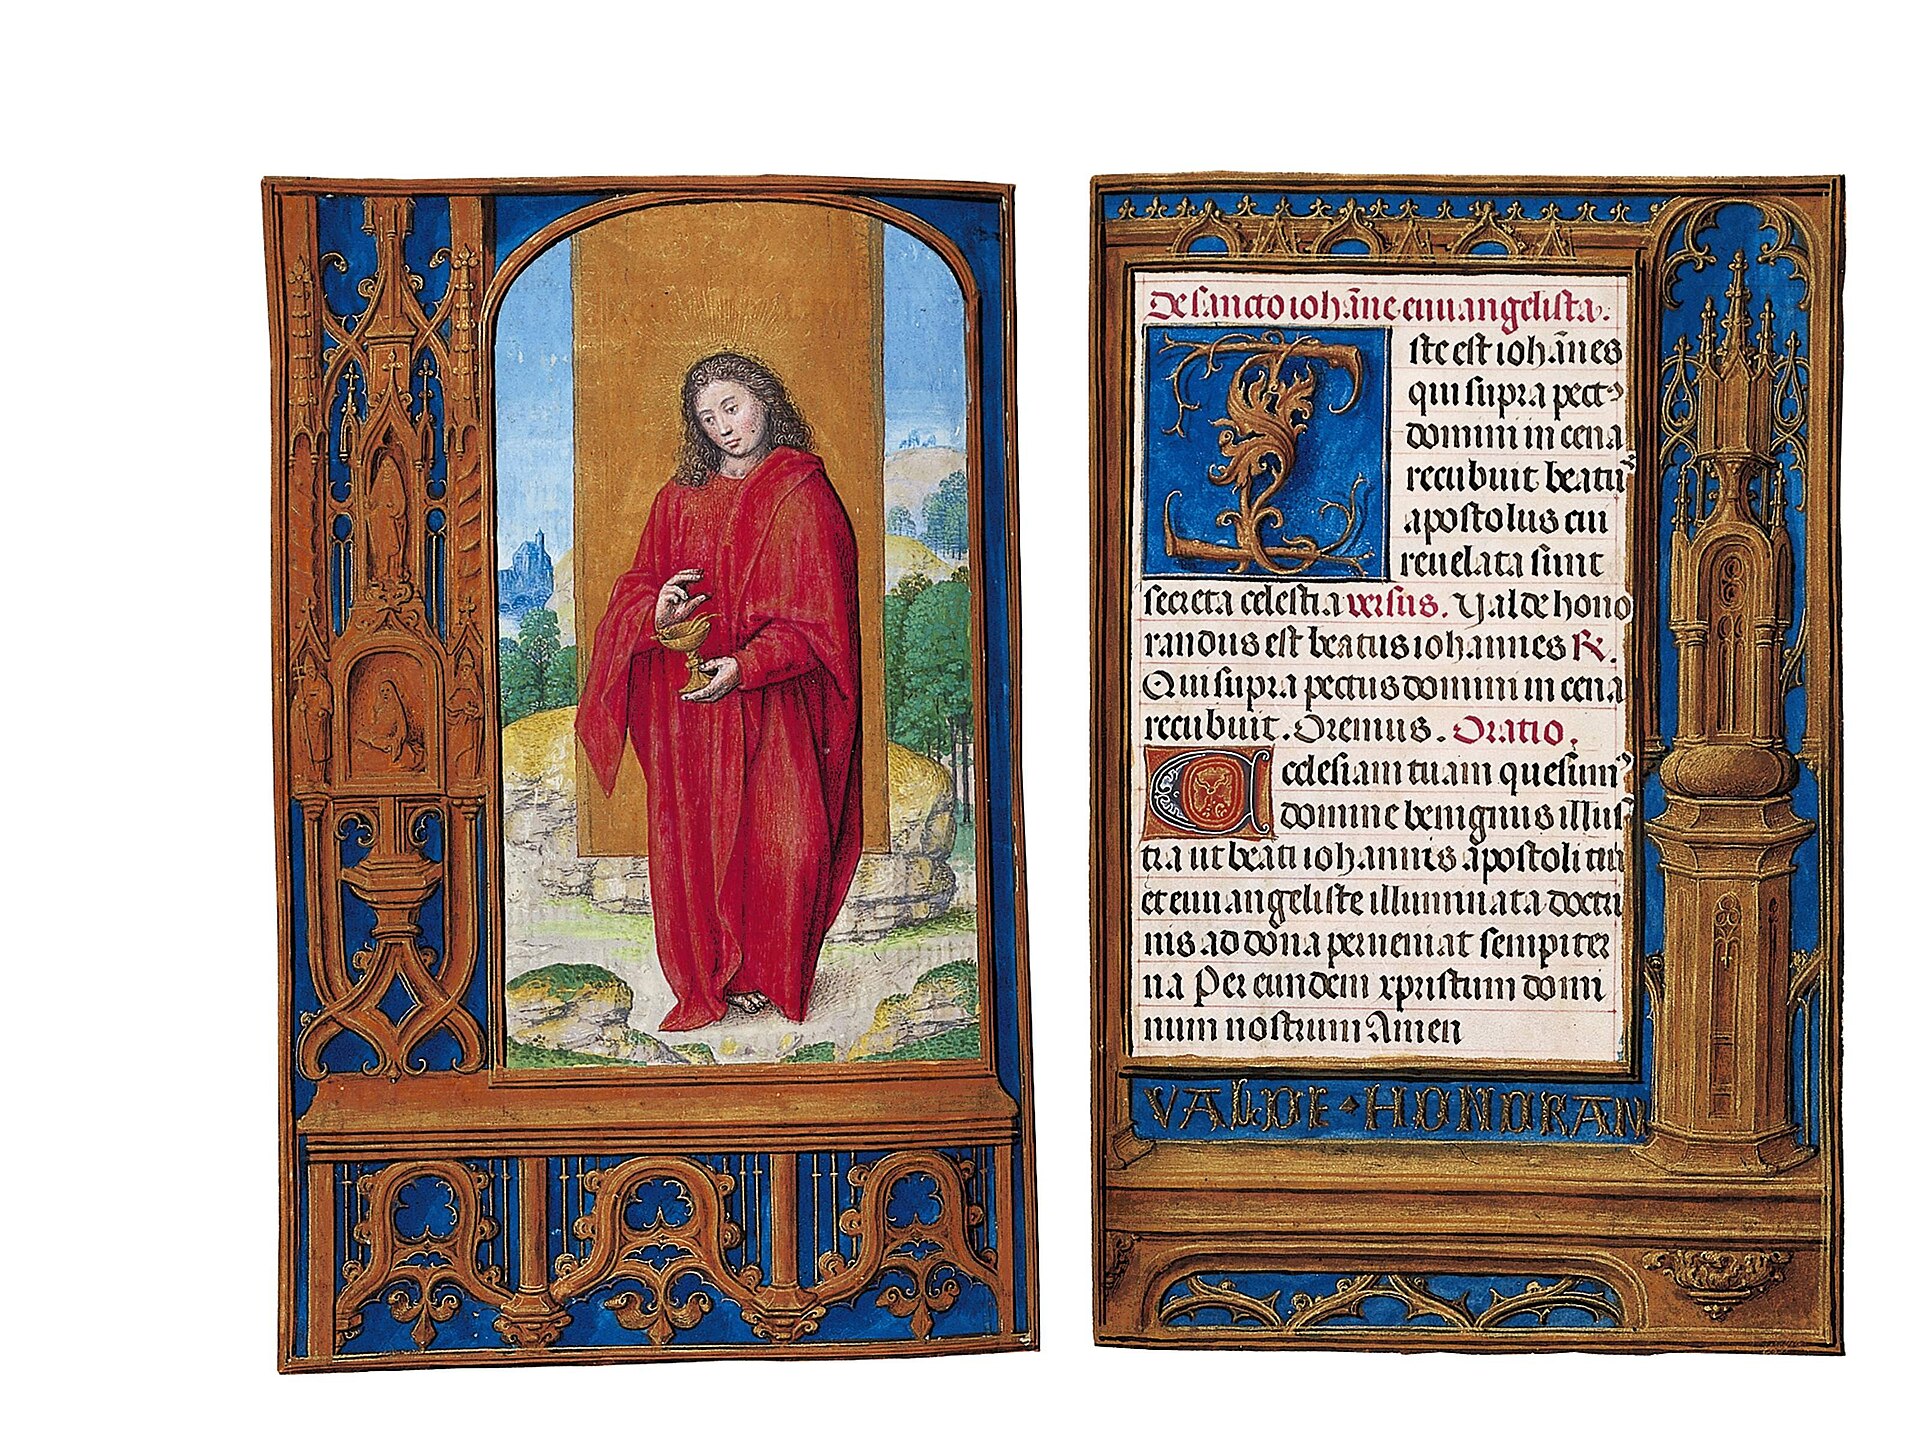 De sancto ioh̄ane euuangelista.
Iste est ioh̄anes
qui supra pectꝰ
domini in cena
recubuit beatū
apostolus cui
reuelata sunt
secreta celestia versus. Valde hono
randus est beatus iohannes ℟.
Qui supra pectus domini in cena
recubuit. Oremus. Oratio.
Ecclesiam tuam quesumꝰ
domine benignus illus
tra ut beati iohannis apostoli tui
et euuangeliste illuminata doctri
nis ad dona perueniat sempiter
na Per eundem xpristum domi
num nostrum Amen
VALDE · HONORAN